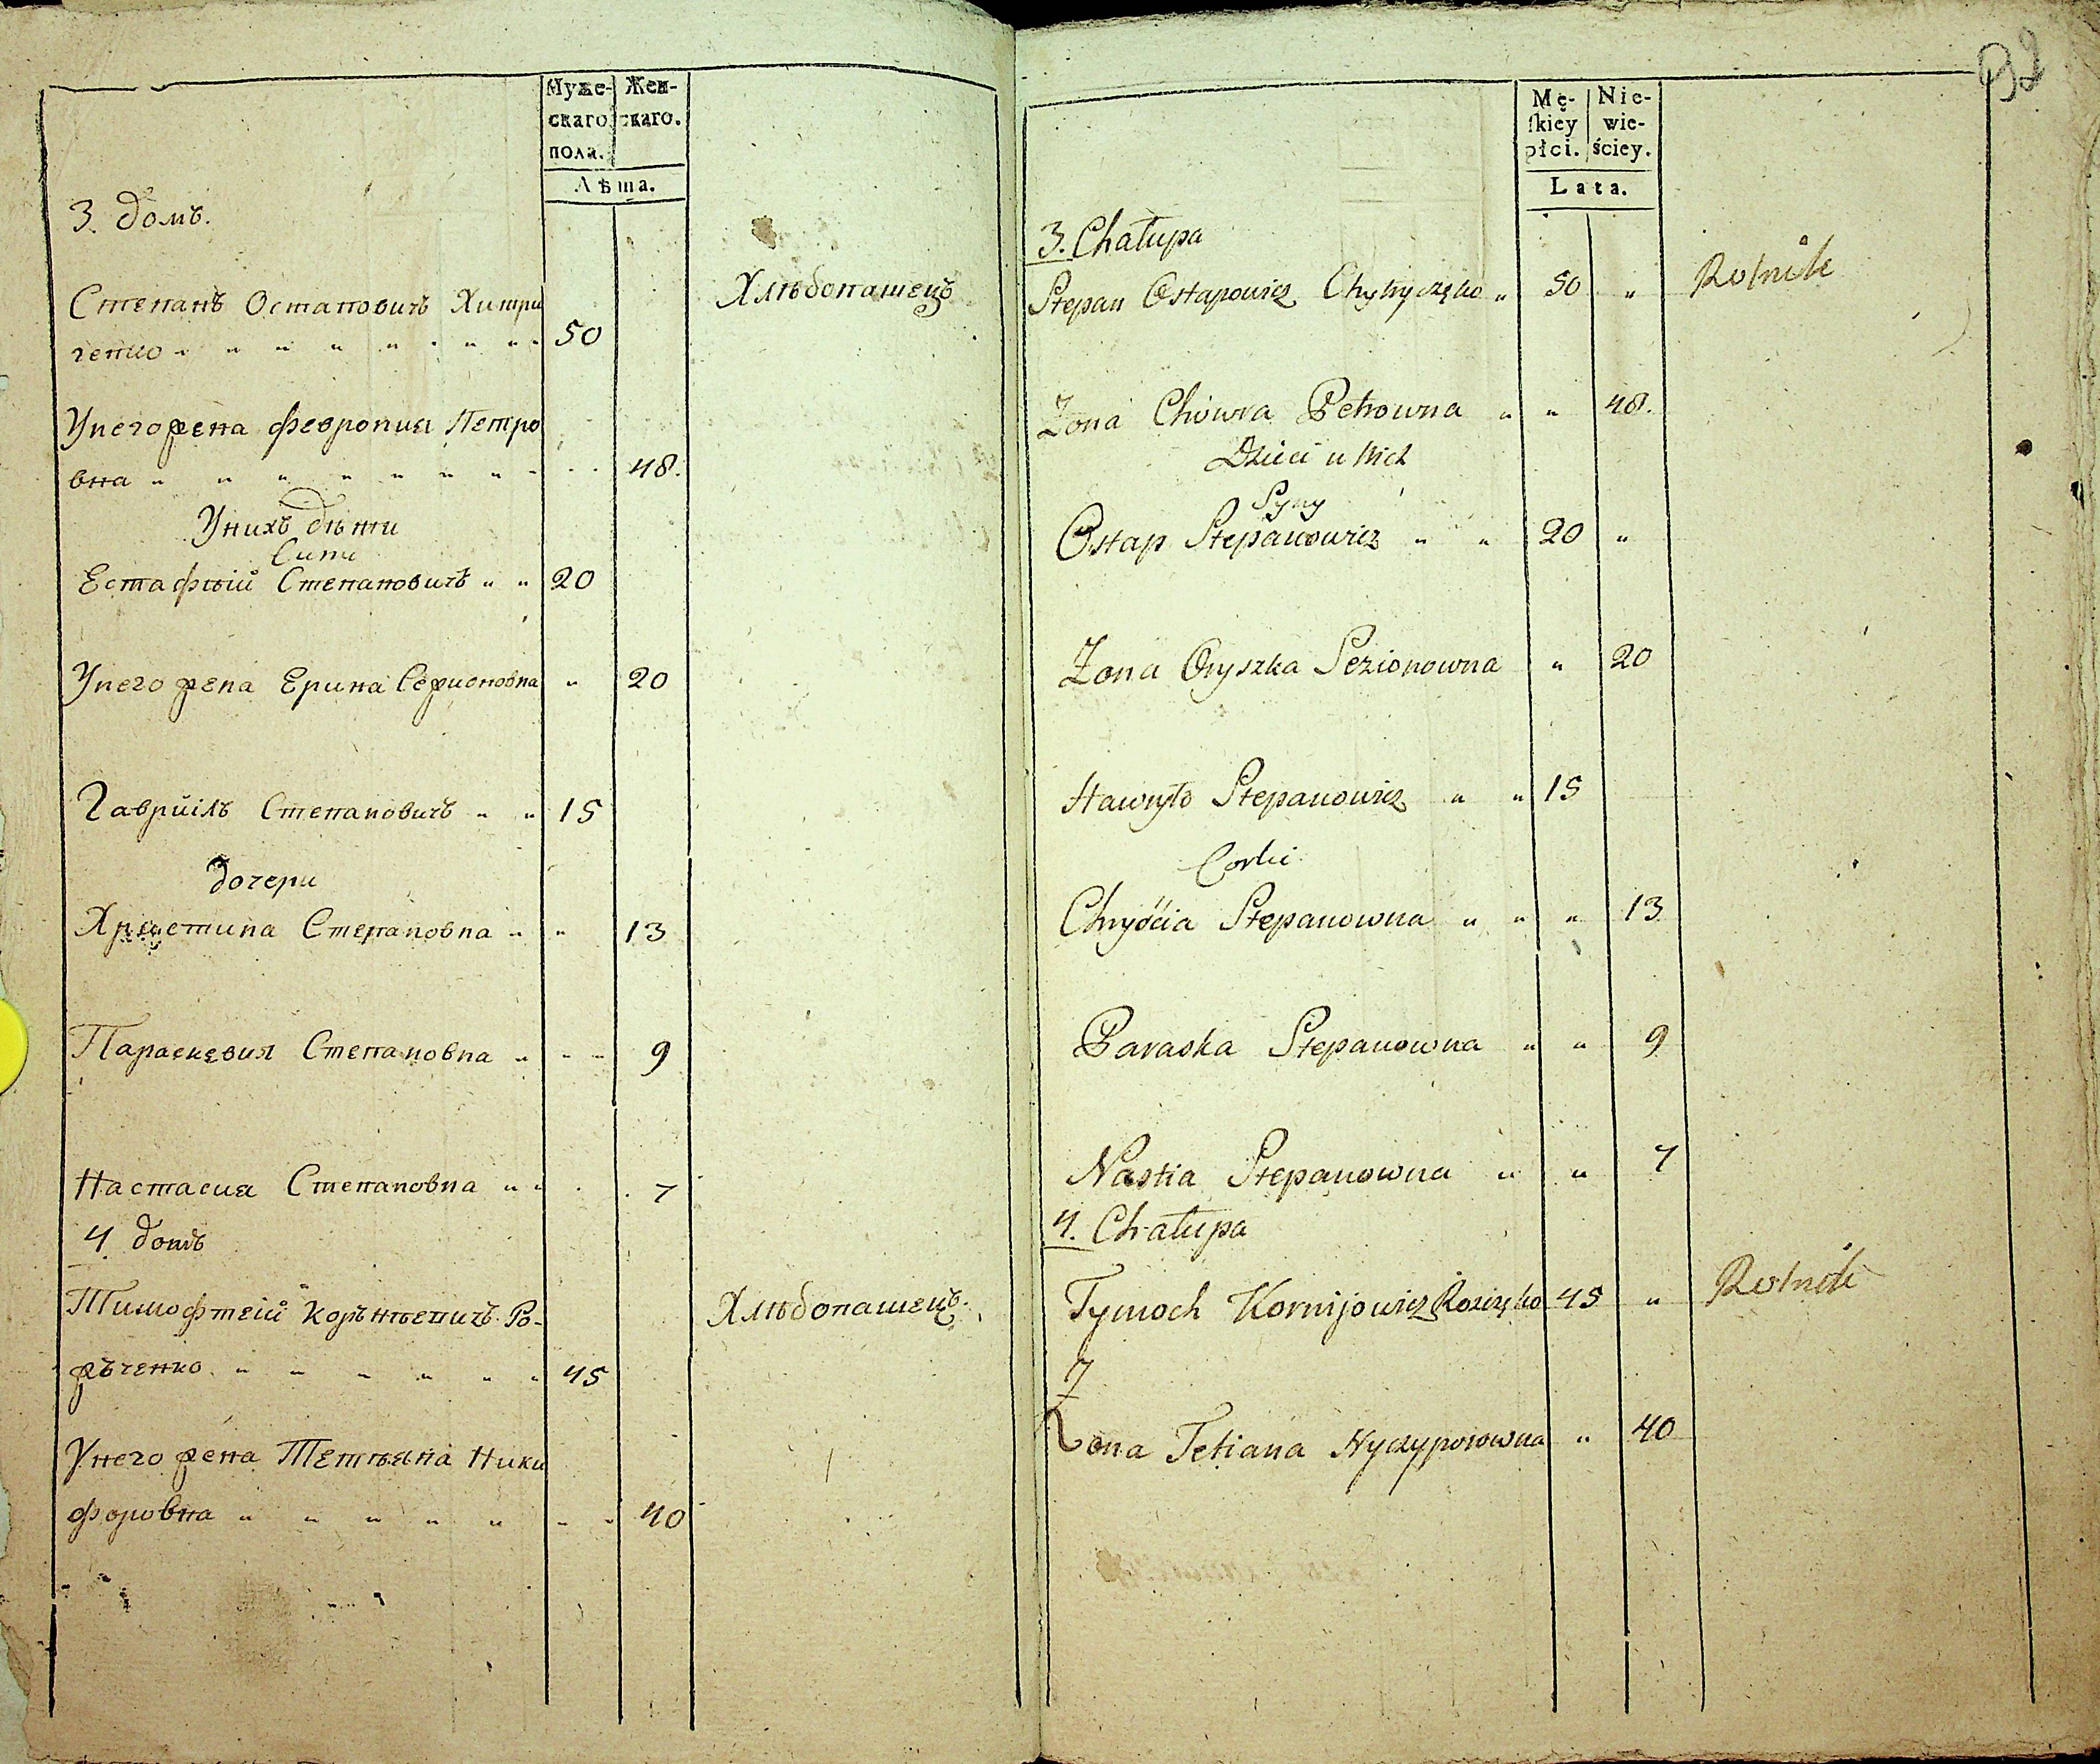 Муже- Жен-
скаго скаго.
пола.
Лѣта.
3. домъ.
Степанъ Остаповичъ Хитри Хлѣбопашецъ
ченко " " " " " " " " 50
Унего жена Феврония Петро
вна " " " " " " " " 48.
Унихъ дѣти
Сини
Естафѣй Степановичъ " " 20
Унего жена Ерина Сежионовна " 20
Гавриілъ Степановичъ " " 15
дочери
Христина Степановна " " 13
Параскевия Степановна " " " 9
Настасия Степановна " " 7
4 домъ
Тимофтей Корънѣевичъ Ро- Хлѣбопашецъ.
жъченко " " " " " " 45
Унего жена Тетяна Ники
форовна " " " " " " " 40
92
Mę- Nie-
skiey wie-
płci. ściey.
Lata.
3. Chałupa
Stepan Ostapowicz Chytryczęko " 50 " Rolnik
Zona Chiwra Petrowna " " 48.
Dzieci u Nich
Syny
Ostap Stepanowicz " " 20 "
Zona Oryszka Sezionowna " 20
Hawryło Stepanowicz " " 15
Corki
Chryścia Stepanowna " " " 13
Paraska Stepanowna " " 9
Nastia Stepanowna " " 7
4. Chałupa
Tymoch Kornijowicz Rozięko 45 " Rolnik
Zona Tetiana Nyczyporowna " 40